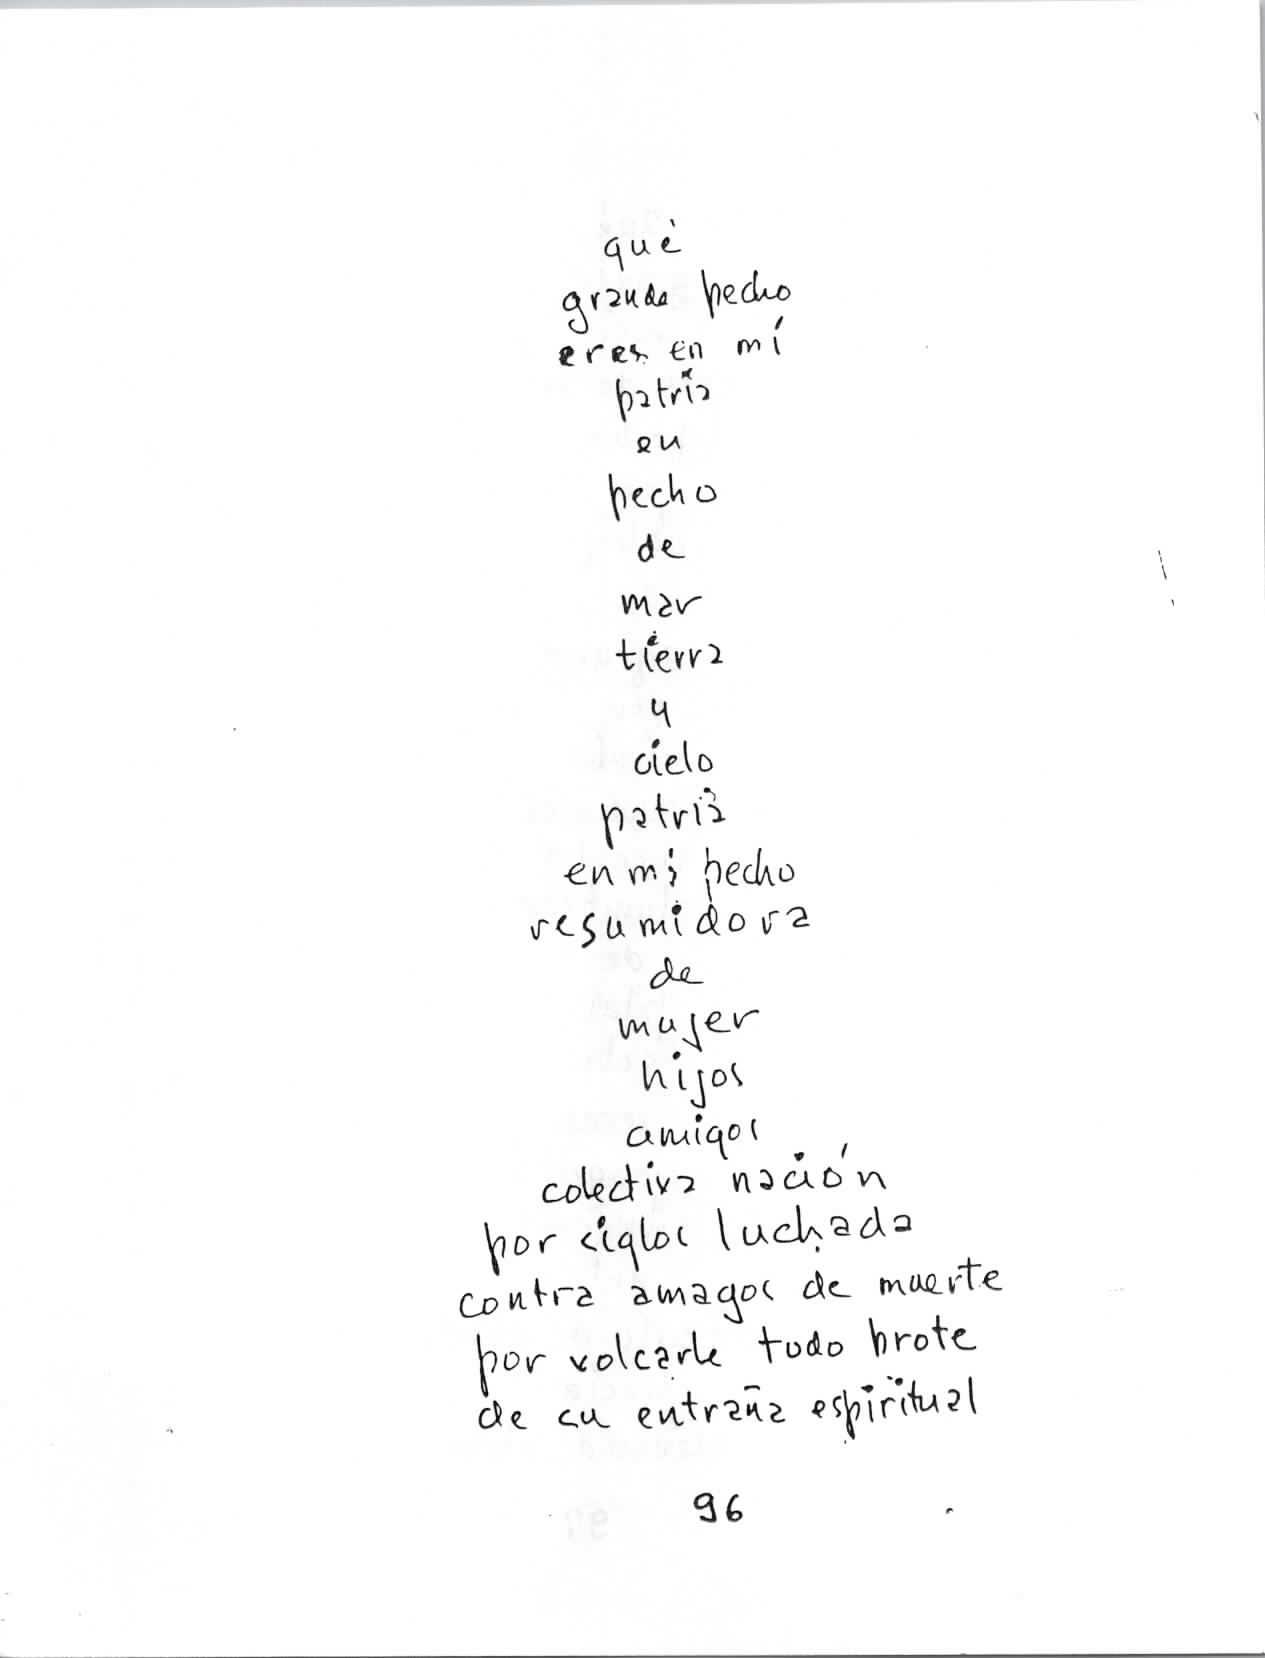 qué
grande pecho
eres en mí
patria
en
pecho
de
mar
tierra
y
cielo
patria
en mi pecho
resumidora
de
mujer
hijos
amigos
colectiva nación
por siglos luchada
contra amagos de muerte
por volcarle todo brote
de su entraña espiritual
96